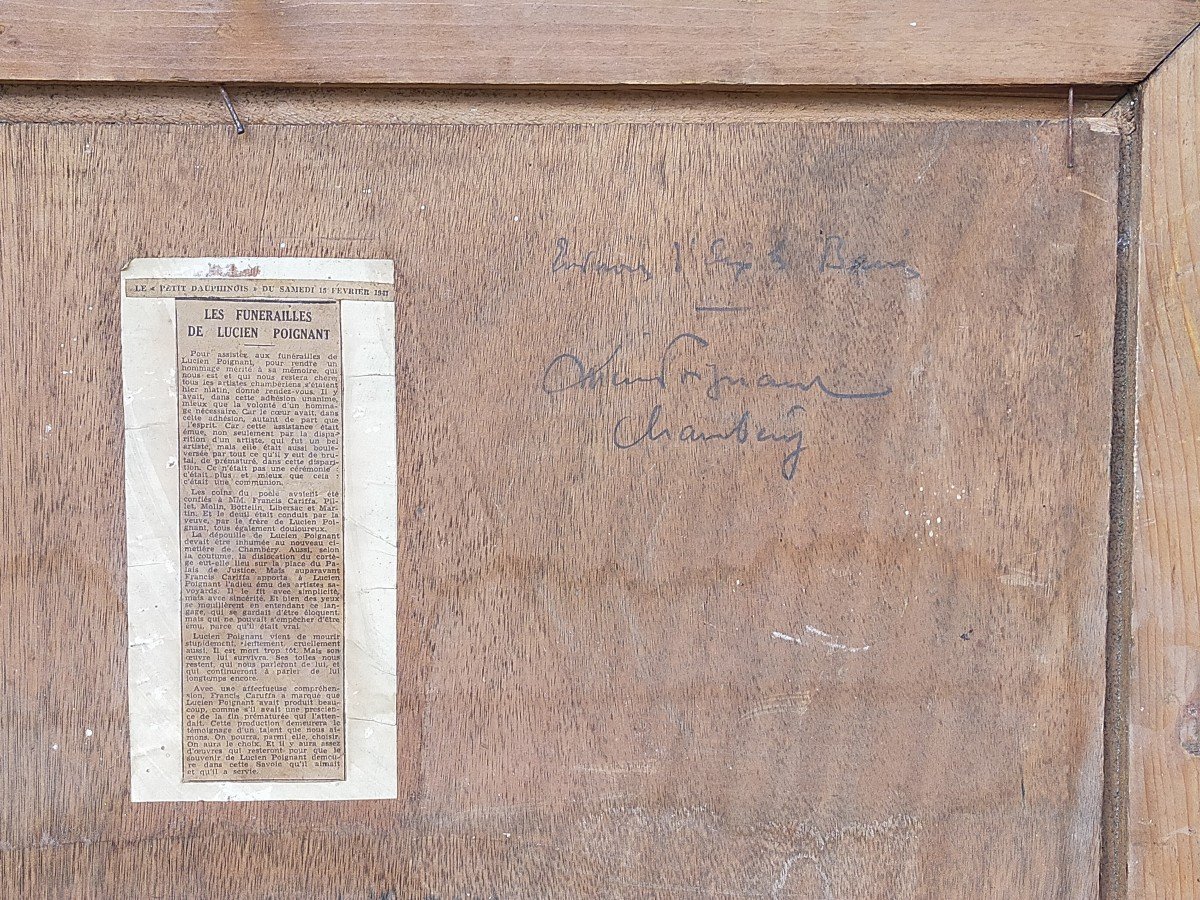 LE « PETIT DAUPHINOIS » DU SAMEDI 15 FEVRIER 1941
LES FUNERAILLES
DE LUCIEN POIGNANT
Pour assister aux funérailles de
Lucien Poignant, pour rendre un
hommage mérité à sa mémoire, qui
nous est et qui nous restera chère,
tous les artistes chambériens s'étaient
hier matin, donné rendez-vous. Il y
avait, dans cette adhésion unanime,
mieux que la volonté d'un homma-
ge nécessaire. Car le cœur avait, dans
cette adhésion, autant de part que
l'esprit. Car cette assistance était
émue, non seulement par la dispa-
rition d'un artiste, qui fut un bel
artiste, mais elle était aussi boule-
versée par tout ce qu'il y eut de bru-
tal, de prématuré, dans cette dispari-
tion. Ce n'était pas une cérémonie :
c'était plus et mieux que cela :
c'était une communion.
Les coins du poêle avaient été
confiés à MM. Francis Cariffa, Pil-
let, Molin, Bottelin, Libersac et Mar-
tin. Et le deuil était conduit par la
veuve, par le frère de Lucien Poi-
gnant, tous également douloureux.
La dépouille de Lucien Poignant
devait être inhumée au nouveau ci-
metière de Chambéry. Aussi, selon
la coutume, la dislocation du cortè-
ge eut-elle lieu sur la place du Pa-
lais de Justice. Mais auparavant
Francis Cariffa apporta à Lucien
Poignant l'adieu ému des artistes sa-
voyards. Il le fit avec simplicité,
mais avec sincérité. Et bien des yeux
se mouillèrent en entendant ce lan-
gage, qui se gardait d'être éloquent,
mais qui ne pouvait s'empêcher d'être
ému, parce qu'il était vrai.
Lucien Poignant vient de mourir
stupidement, cruellement
aussi. Il est mort trop tôt. Mais son
œuvre lui survivra. Ses toiles nous
restent, qui nous parleront de lui, et
qui continueront à parler de lui
longtemps encore.
Avec une affectueuse compréhen-
sion, Francis Caruffa a marqué que
Lucien Poignant avait produit beau-
coup, comme s'il avait une prescien-
ce de la fin prématurée qui l'atten-
dait. Cette production demeurera le
témoignage d'un talent que nous ai-
mons. On pourra, parmi elle, choisir.
On aura le choix. Et il y aura assez
d'œuvres qui resteront pour que le
souvenir de Lucien Poignant demeu-
re dans cette Savoie qu'il aimait
et qu'il a servie.
Environs d'Aix les Bains
Lucien Poignant
Chambéry